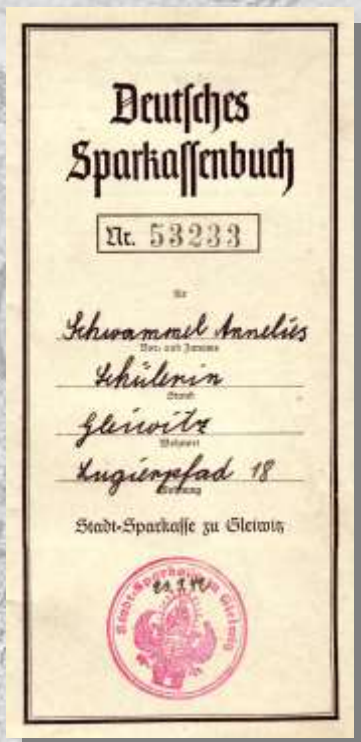 Deutſches
Sparkaſſenbuch
Nr. 53233
für
Schwammel Annelies
Vor- und Zuname
Schülerin
Stand
Gleiwitz
Wohnort
Lugierpfad 18
Wohnung
Stadt-Sparkaſſe zu Gleiwitz
Stadt-Sparkasse zu Gleiwitz